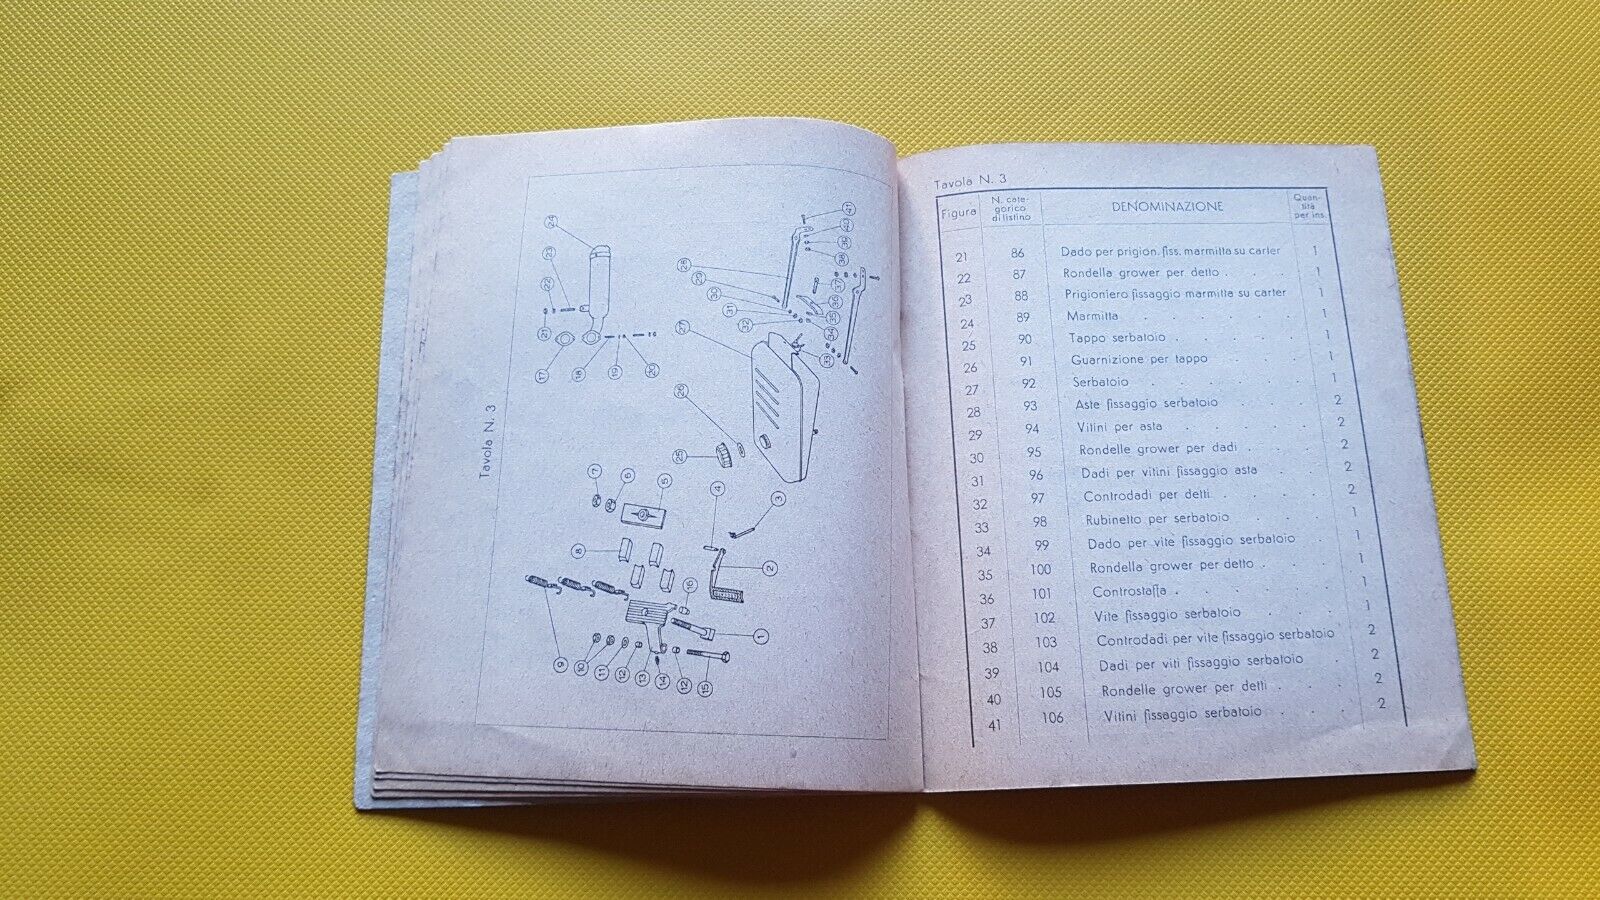 Tavola N. 3
24
23
22
21
17
18
19
20
41
40
39
38
28
29
30
31
32
27
37
36
35
34
33
26
25
7
6
5
4
3
8
2
16
1
9
10
11
12
13
14
12
15
Tavola N. 3
Figura N. cate- gorico di listino DENOMINAZIONE Quan- tità per ins.
21 86 Dado per prigion. fiss. marmitta su carter 1
22 87 Rondella grower per detto . . . . 1
23 88 Prigioniero fissaggio marmitta su carter 1
24 89 Marmitta . . . . . . 1
25 90 Tappo serbatoio . . . . . 1
26 91 Guarnizione per tappo . . . . 1
27 92 Serbatoio . . . . . . 1
28 93 Aste fissaggio serbatoio . . . . 2
29 94 Vitini per asta . . . . . 2
30 95 Rondelle grower per dadi . . . . 2
31 96 Dadi per vitini fissaggio asta . . . 2
32 97 Controdadi per detti . . . . . 2
33 98 Rubinetto per serbatoio . . . . 1
34 99 Dado per vite fissaggio serbatoio . . 1
35 100 Rondella grower per detto . . . . 1
36 101 Controstaffa . . . . . . 1
37 102 Vite fissaggio serbatoio . . . . 1
38 103 Controdadi per vite fissaggio serbatoio 2
39 104 Dadi per viti fissaggio serbatoio . . 2
40 105 Rondelle grower per detti . . . . 2
41 106 Vitini fissaggio serbatoio . . . . 2